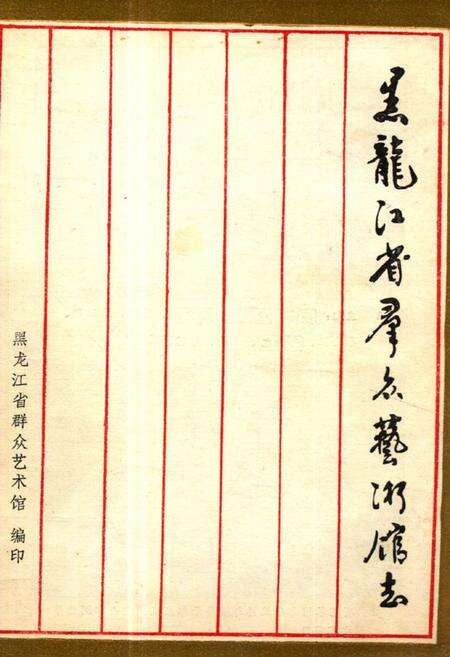 黑龍江省羣众藝術館志
黑龙江省群众艺术馆 编印